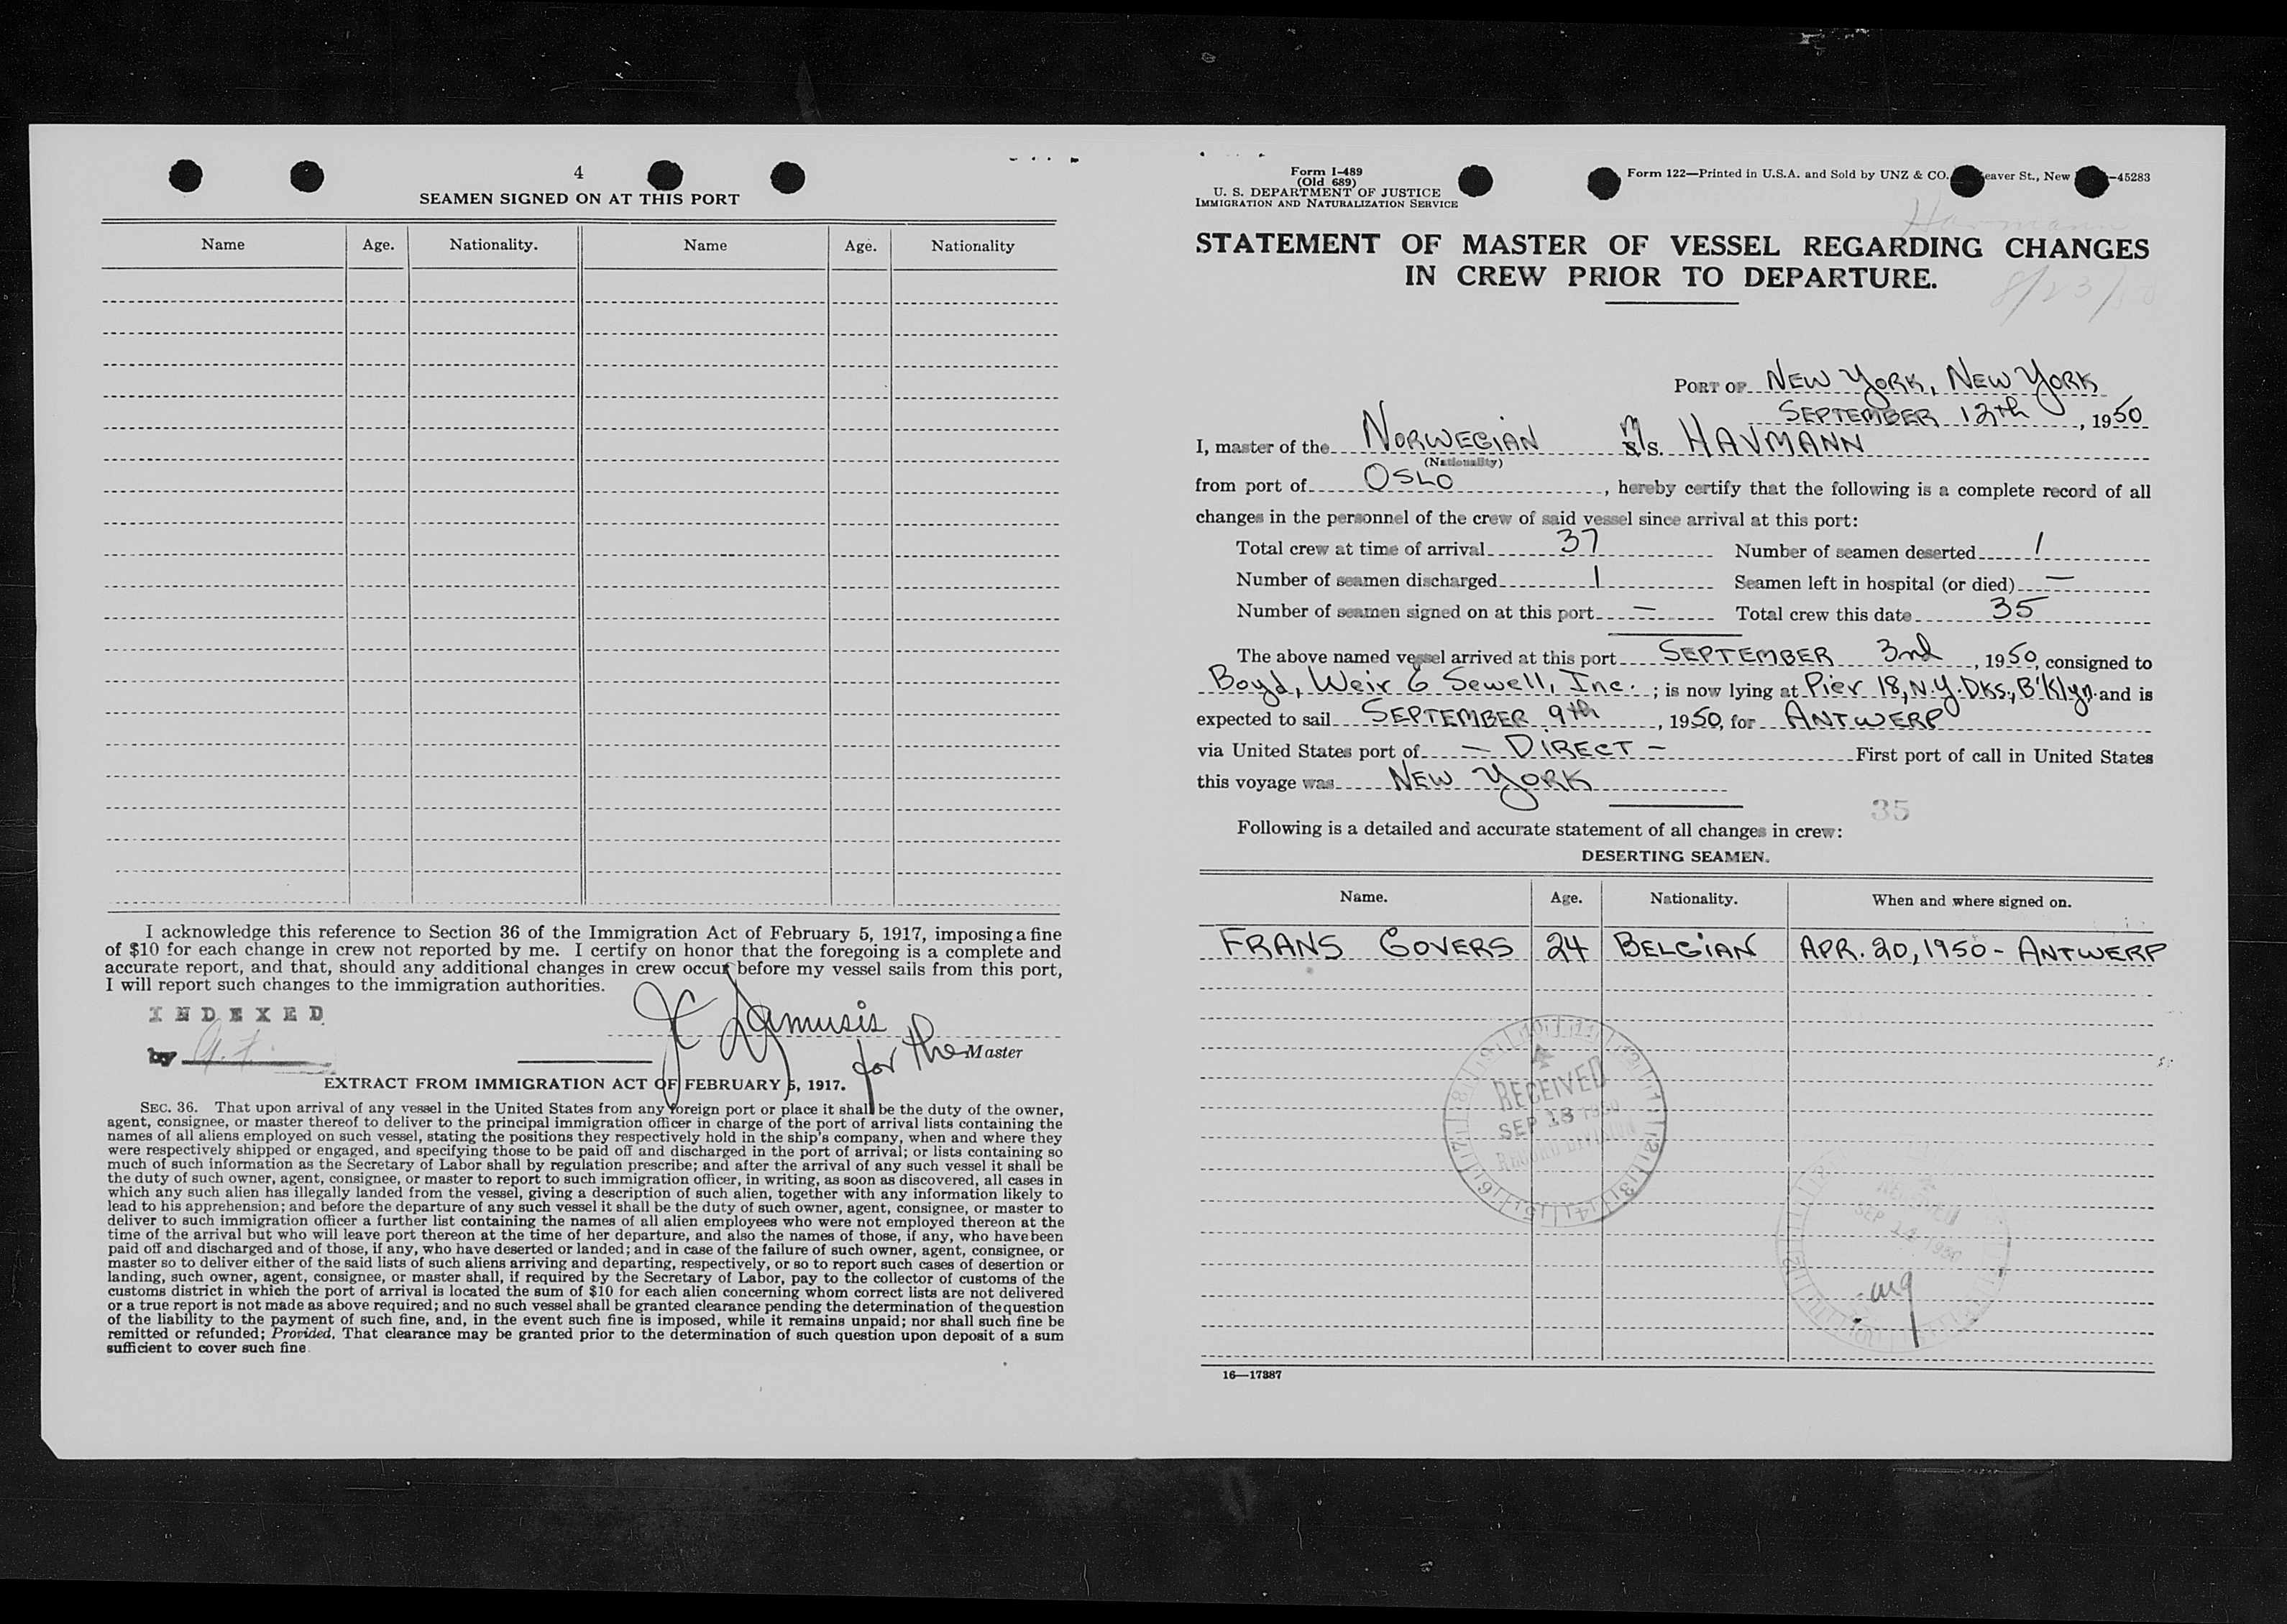 4
SEAMEN SIGNED ON AT THIS PORT
Name Age. Nationality. Name Age. Nationality
I acknowledge this reference to Section 36 of the Immigration Act of February 5, 1917, imposing a fine
of $10 for each change in crew not reported by me. I certify on honor that the foregoing is a complete and
accurate report, and that, should any additional changes in crew occur before my vessel sails from this port,
I will report such changes to the immigration authorities.
INDEXED
by
for the Master
EXTRACT FROM IMMIGRATION ACT OF FEBRUARY 5, 1917.
SEC. 36. That upon arrival of any vessel in the United States from any foreign port or place it shall be the duty of the owner,
agent, consignee, or master thereof to deliver to the principal immigration officer in charge of the port of arrival lists containing the
names of all aliens employed on such vessel, stating the positions they respectively hold in the ship's company, when and where they
were respectively shipped or engaged, and specifying those to be paid off and discharged in the port of arrival; or lists containing so
much of such information as the Secretary of Labor shall by regulation prescribe; and after the arrival of any such vessel it shall be
the duty of such owner, agent, consignee, or master to report to such immigration officer, in writing, as soon as discovered, all cases in
which any such alien has illegally landed from the vessel, giving a description of such alien, together with any information likely to
lead to his apprehension; and before the departure of any such vessel it shall be the duty of such owner, agent, consignee, or master to
deliver to such immigration officer a further list containing the names of all alien employees who were not employed thereon at the
time of the arrival but who will leave port thereon at the time of her departure, and also the names of those, if any, who have been
paid off and discharged and of those, if any, who have deserted or landed; and in case of the failure of such owner, agent, consignee, or
master so to deliver either of the said lists of such aliens arriving and departing, respectively, or so to report such cases of desertion or
landing, such owner, agent, consignee, or master shall, if required by the Secretary of Labor, pay to the collector of customs of the
customs district in which the port of arrival is located the sum of $10 for each alien concerning whom correct lists are not delivered
or a true report is not made as above required; and no such vessel shall be granted clearance pending the determination of the question
of the liability to the payment of such fine, and, in the event such fine is imposed, while it remains unpaid; nor shall such fine be
remitted or refunded; Provided, That clearance may be granted prior to the determination of such question upon deposit of a sum
sufficient to cover such fine.
Form I-489
(Old 689)
U. S. DEPARTMENT OF JUSTICE
IMMIGRATION AND NATURALIZATION SERVICE
Form 122—Printed in U.S.A. and Sold by UNZ & CO. eaver St., New —45283
Havmann
STATEMENT OF MASTER OF VESSEL REGARDING CHANGES
IN CREW PRIOR TO DEPARTURE.
8/23/50
PORT OF NEW YORK, NEW YORK
SEPTEMBER 12th, 1950
I, master of the NORWEGIAN M/S. HAVMANN
(Nationality)
from port of OSLO, hereby certify that the following is a complete record of all
changes in the personnel of the crew of said vessel since arrival at this port:
Total crew at time of arrival 37 Number of seamen deserted 1
Number of seamen discharged 1 Seamen left in hospital (or died) —
Number of seamen signed on at this port — Total crew this date 35
The above named vessel arrived at this port SEPTEMBER 3rd, 1950, consigned to
Boyd, Weir & Sewell, Inc.; is now lying at Pier 18, N.Y. Dks., B'klyn. and is
expected to sail SEPTEMBER 9th, 1950, for ANTWERP
via United States port of — DIRECT — First port of call in United States
this voyage was NEW YORK
35
Following is a detailed and accurate statement of all changes in crew:
DESERTING SEAMEN.
Name. Age. Nationality. When and where signed on.
FRANS GOVERS 24 BELGIAN APR. 20, 1950 - ANTWERP
RECEIVED
SEP 18 1950
RECORD DIVISION
RECEIVED
16—17387